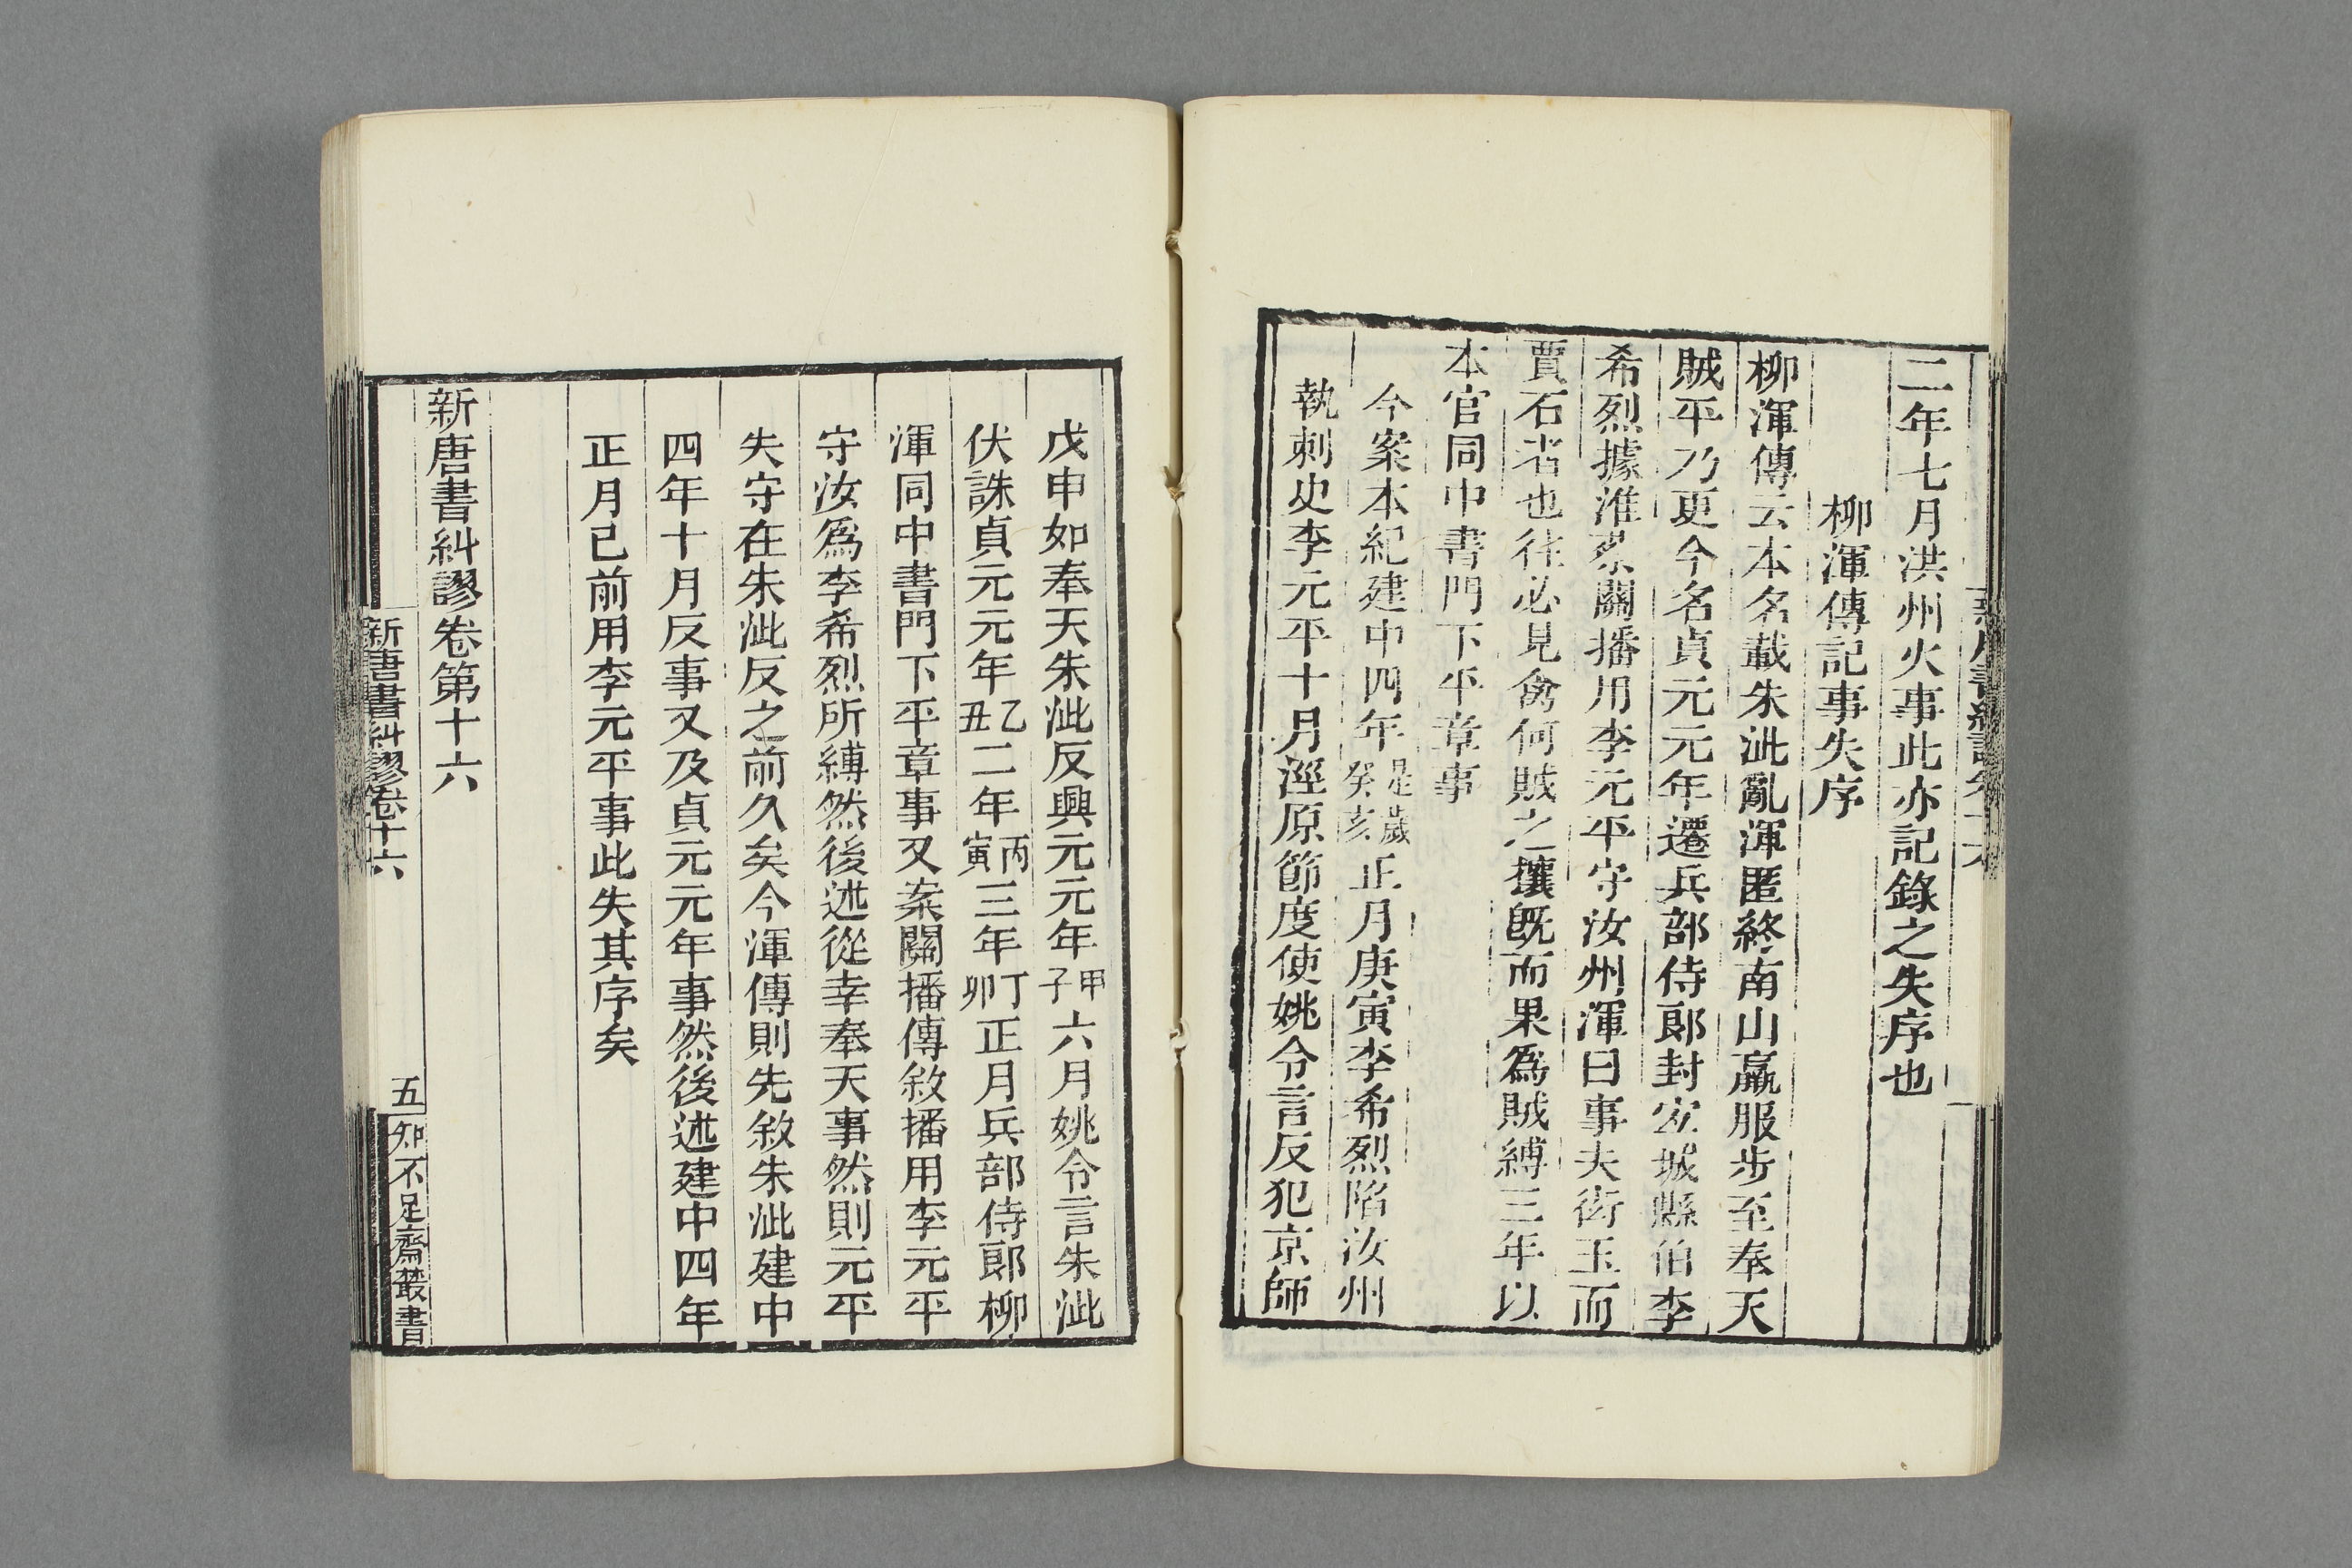 二年七月洪州火事此亦記錄之失序也
柳渾傳記事失序
柳渾傳云本名載朱泚亂渾匿終南山羸服步至奉天
賊平乃更今名貞元元年遷兵部侍郎封宜城縣伯李
希烈據淮蔡關播用李元平守汝州渾曰事夫衒玉而
賈石者也往必見禽何賊之攘旣而果爲賊縛三年以
本官同中書門下平章事
今案本紀建中四年是歲癸亥正月庚寅李希烈陷汝州
執刺史李元平十月涇原節度使姚令言反犯京師
戊申如奉天朱泚反興元元年甲子六月姚令言朱泚
伏誅貞元元年乙丑二年丙寅三年丁卯正月兵部侍郎柳
渾同中書門下平章事又案關播傳敘播用李元平
守汝爲李希烈所縛然後述從幸奉天事然則元平
失守在朱泚反之前久矣今渾傳則先敘朱泚建中
四年十月反事又及貞元元年事然後述建中四年
正月已前用李元平事此失其序矣
新唐書糾謬卷第十六
新唐書糾謬卷十六
五
知不足齋叢書